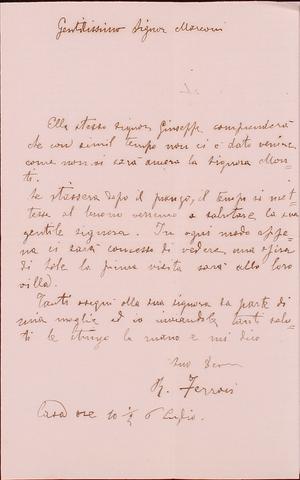 Gentilissimo Signor Marconi
Ella stesso signor Giuseppe comprenderà
che con simil tempo non ci è dato venire
come non vi sarà ancora la signora Mon-
ti.
Se stassera dopo il pranzo, il tempo si met-
tesse al buono verremo a salutare la sua
gentile signora. In ogni modo appe-
na ci sarà concesso di vedere una spira
di sole la prima visita sarà alla loro
villa.
Tanti ossequi alla sua signora da parte di
mia moglie ed io inviandole tanti salu-
ti le stringo la mano e mi dico
Suo
Ferrari
Casa ore 10 ½ 6 Luglio.